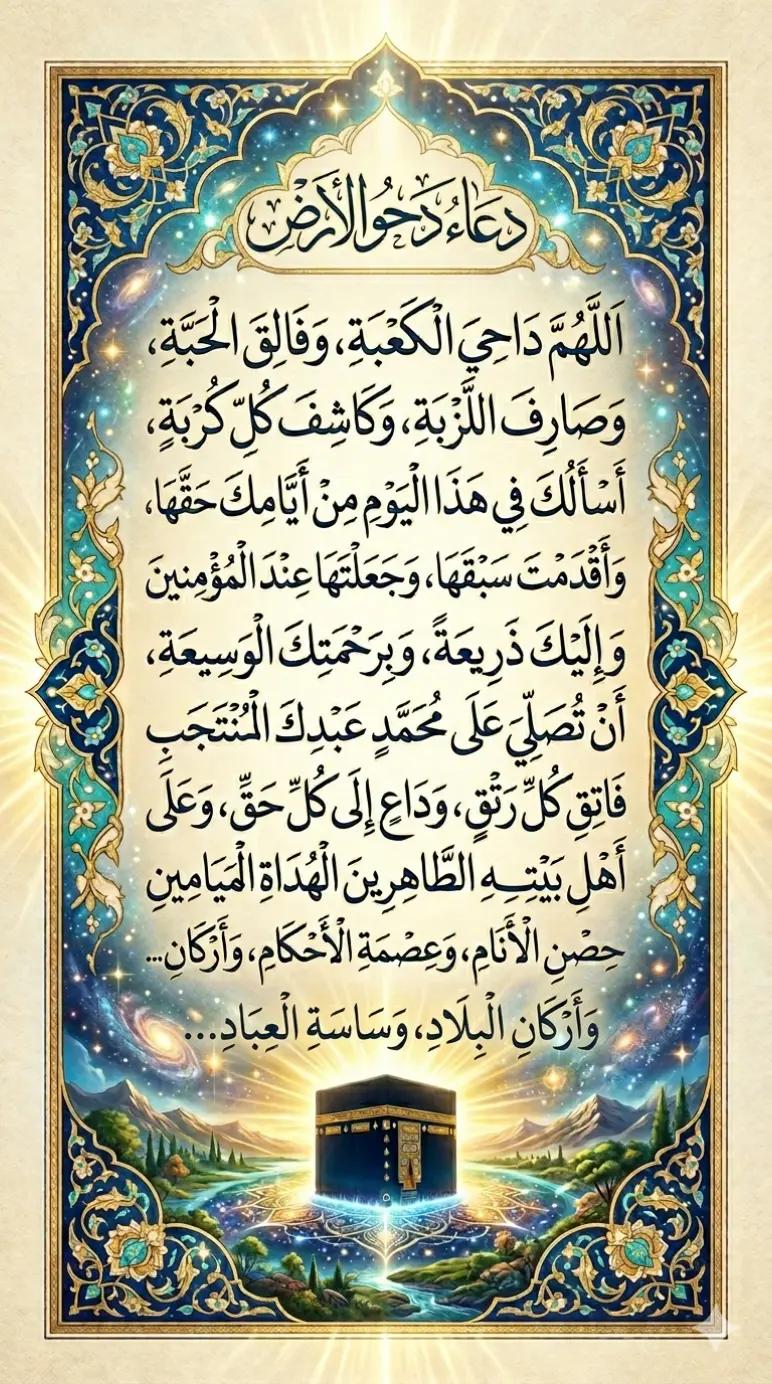 دعاء دحو الأرض
اَللَّهُمَّ دَاحِيَ الْكَعْبَةِ، وَفَالِقَ الْحَبَّةِ،
وَصَارِفَ اللَّزْبَةِ، وَكَاشِفَ كُلِّ كُرْبَةٍ،
أَسْأَلُكَ فِي هَذَا الْيَوْمِ مِنْ أَيَّامِكَ حَقَّهَا،
وَأَقْدَمْتَ سَبْقَهَا، وَجَعَلْتَهَا عِنْدَ الْمُؤْمِنِينَ
وَإِلَيْكَ ذَرِيعَةً، وَبِرَحْمَتِكَ الْوَسِيعَةِ،
أَنْ تُصَلِّيَ عَلَى مُحَمَّدٍ عَبْدِكَ الْمُنْتَجَبِ
فَاتِقِ كُلِّ رَتْقٍ، وَدَاعٍ إِلَى كُلِّ حَقٍّ، وَعَلَى
أَهْلِ بَيْتِهِ الطَّاهِرِينَ الْهُدَاةِ الْمَيَامِينِ
حِصْنِ الْأَنَامِ، وَعِصْمَةِ الْأَحْكَامِ، وَأَرْكَانِ...
وَأَرْكَانِ الْبِلَادِ، وَسَاسَةِ الْعِبَادِ...